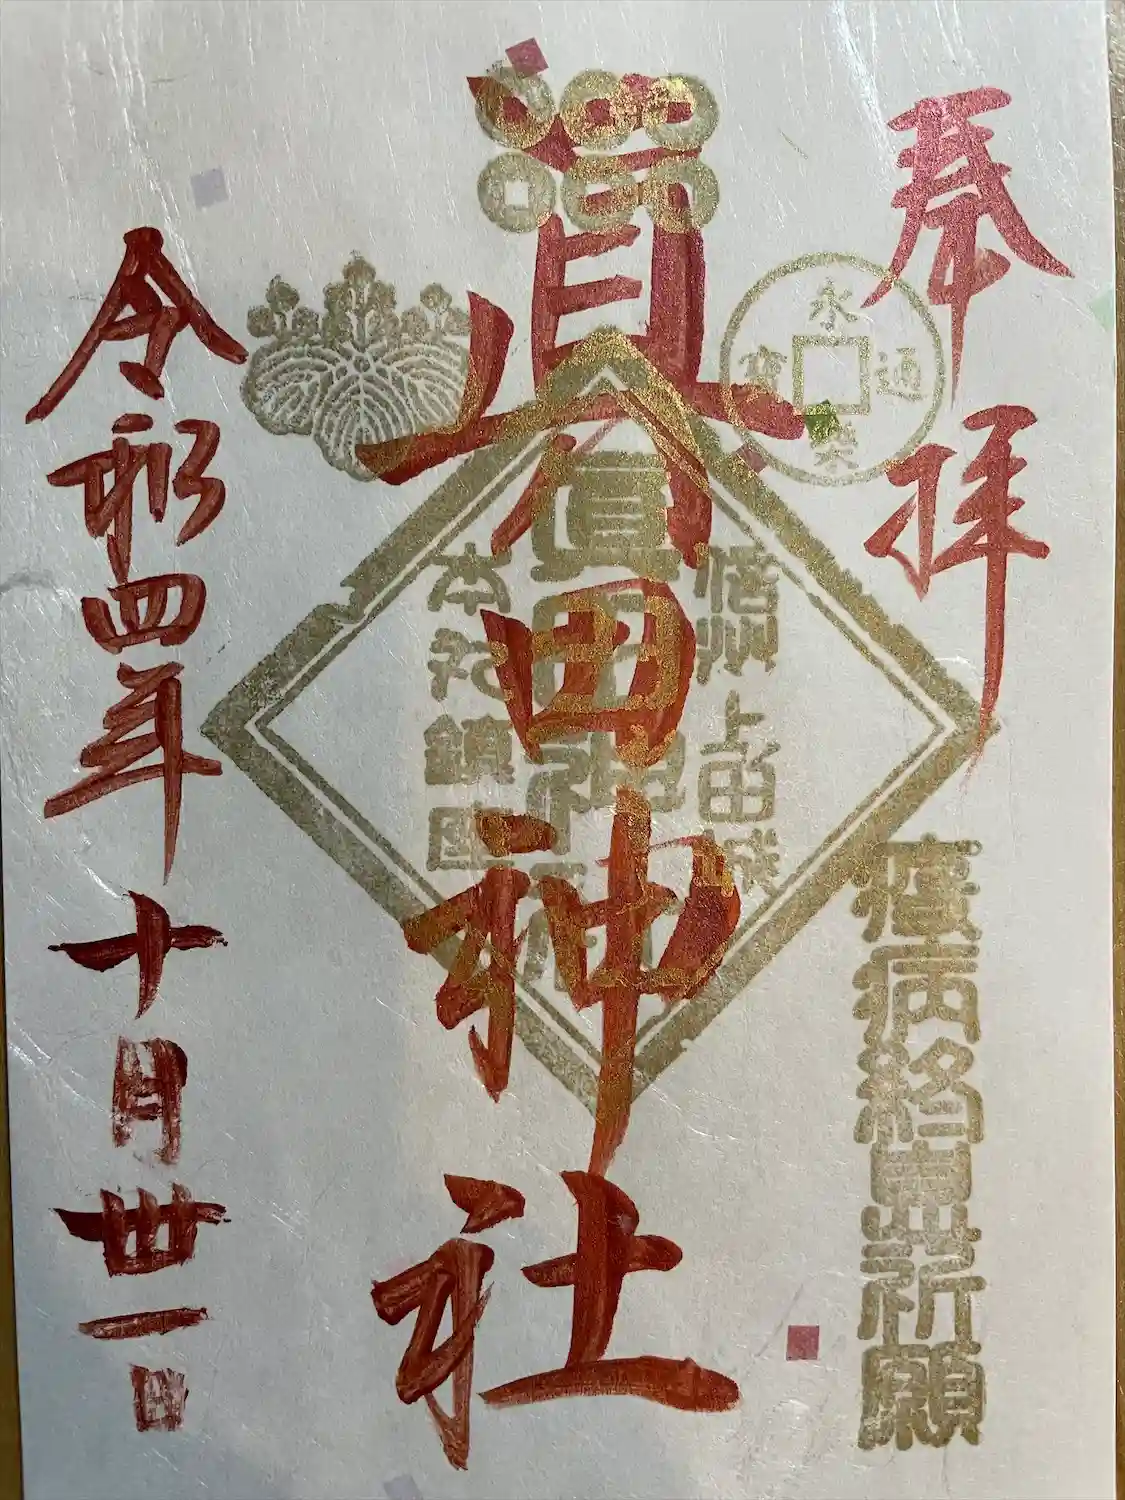 奉拝
疫病終息祈願
永樂通寶
眞田神社
信州上田城
眞田神社
本丸鎮座
令和四年十月丗一日